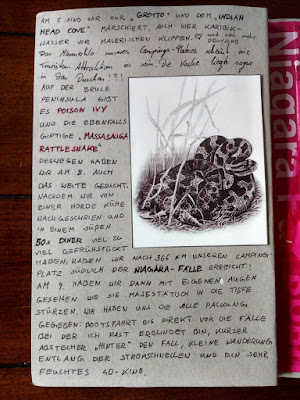 AM 7. SIND WIR ZUR „GROTTO" UND DEM „INDIAN
HEAD COVE" MARSCHIERT. AUCH HIER KARIBIK-
WASSER VOR MALERISCHEN KLIPPEN. ♡ und viel mehr
Das Mennohło unseres Campings-Platzes scheint eine
Touristen Attraktion zu sein. Die Kacke liegt sogar
in den Duschen!?!
AUF DER BRUCE
PENINSULA GIBT
ES POISON IVY
UND DIE EBENFALLS
GIFTIGE „MASSASAUGA
RATTLESNAKE".
DESWEGEN HABEN
WIR AM 8. AUCH
DAS WEITE GESUCHT.
NACHDEM WIR VON
EINER HORDE KÜHE
NACHGESCHRIEN UND
IN EINEM SÜßEN
50s DINER VIEL ZU
VIEL GEFRÜHSTÜCKT
HABEN, HABEN WIR NACH 366 KM UNSEREN CAMPING
PLATZ SÜDLICH DER NIAGARA-FÄLLE ERREICHT.
AM 9. HABEN WIR DANN MIT EIGENEN AUGEN
GESEHEN WIE SIE MAJESTÄTISCH IN DIE TIEFE
STÜRZEN. WIR HABEN UNS DIE VOLLE PACKUNG
GEGEBEN: BOOTSFAHRT BIS DIREKT VOR DIE FÄLLE
BEI DER ICH FAST ERBLINDET BIN, KURZER
ABSTECHER „HINTER" DEN FALL, KLEINE WANDERUNG
ENTLANG DER STROMSCHNELLEN UND EIN SEHR
FEUCHTES 4D-KINO.
Niagara